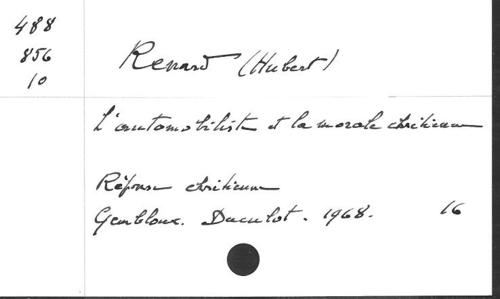 488
856
10
Renard (Hubert)
L'automobiliste et la morale chrétienne
Réponse chrétienne
Gembloux. Duculot. 1968. 16